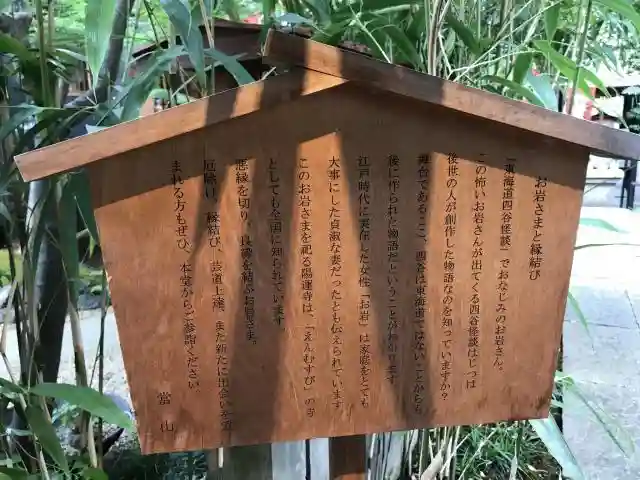 お岩さまと縁結び
「東海道四谷怪談」でおなじみのお岩さん。
この怖いお岩さんが出てくる四谷怪談はじつは
後世の人が創作した物語なのを知っていますか？
舞台であるここ、四谷は東海道ではないことからも
後に作られた物語だということが判ります
江戸時代に実在した女性「お岩」は家庭をとても
大事にした貞淑な妻だったとも伝えられています
このお岩さまを祀る陽運寺は、「えんむすび」の寺
としても全国に知られています。
悪縁を切り、良縁を結ぶお岩さま。
厄除け、縁結び、芸道上達、また新たに出会いを
まれる方もぜひ、本堂からご参詣ください
當山